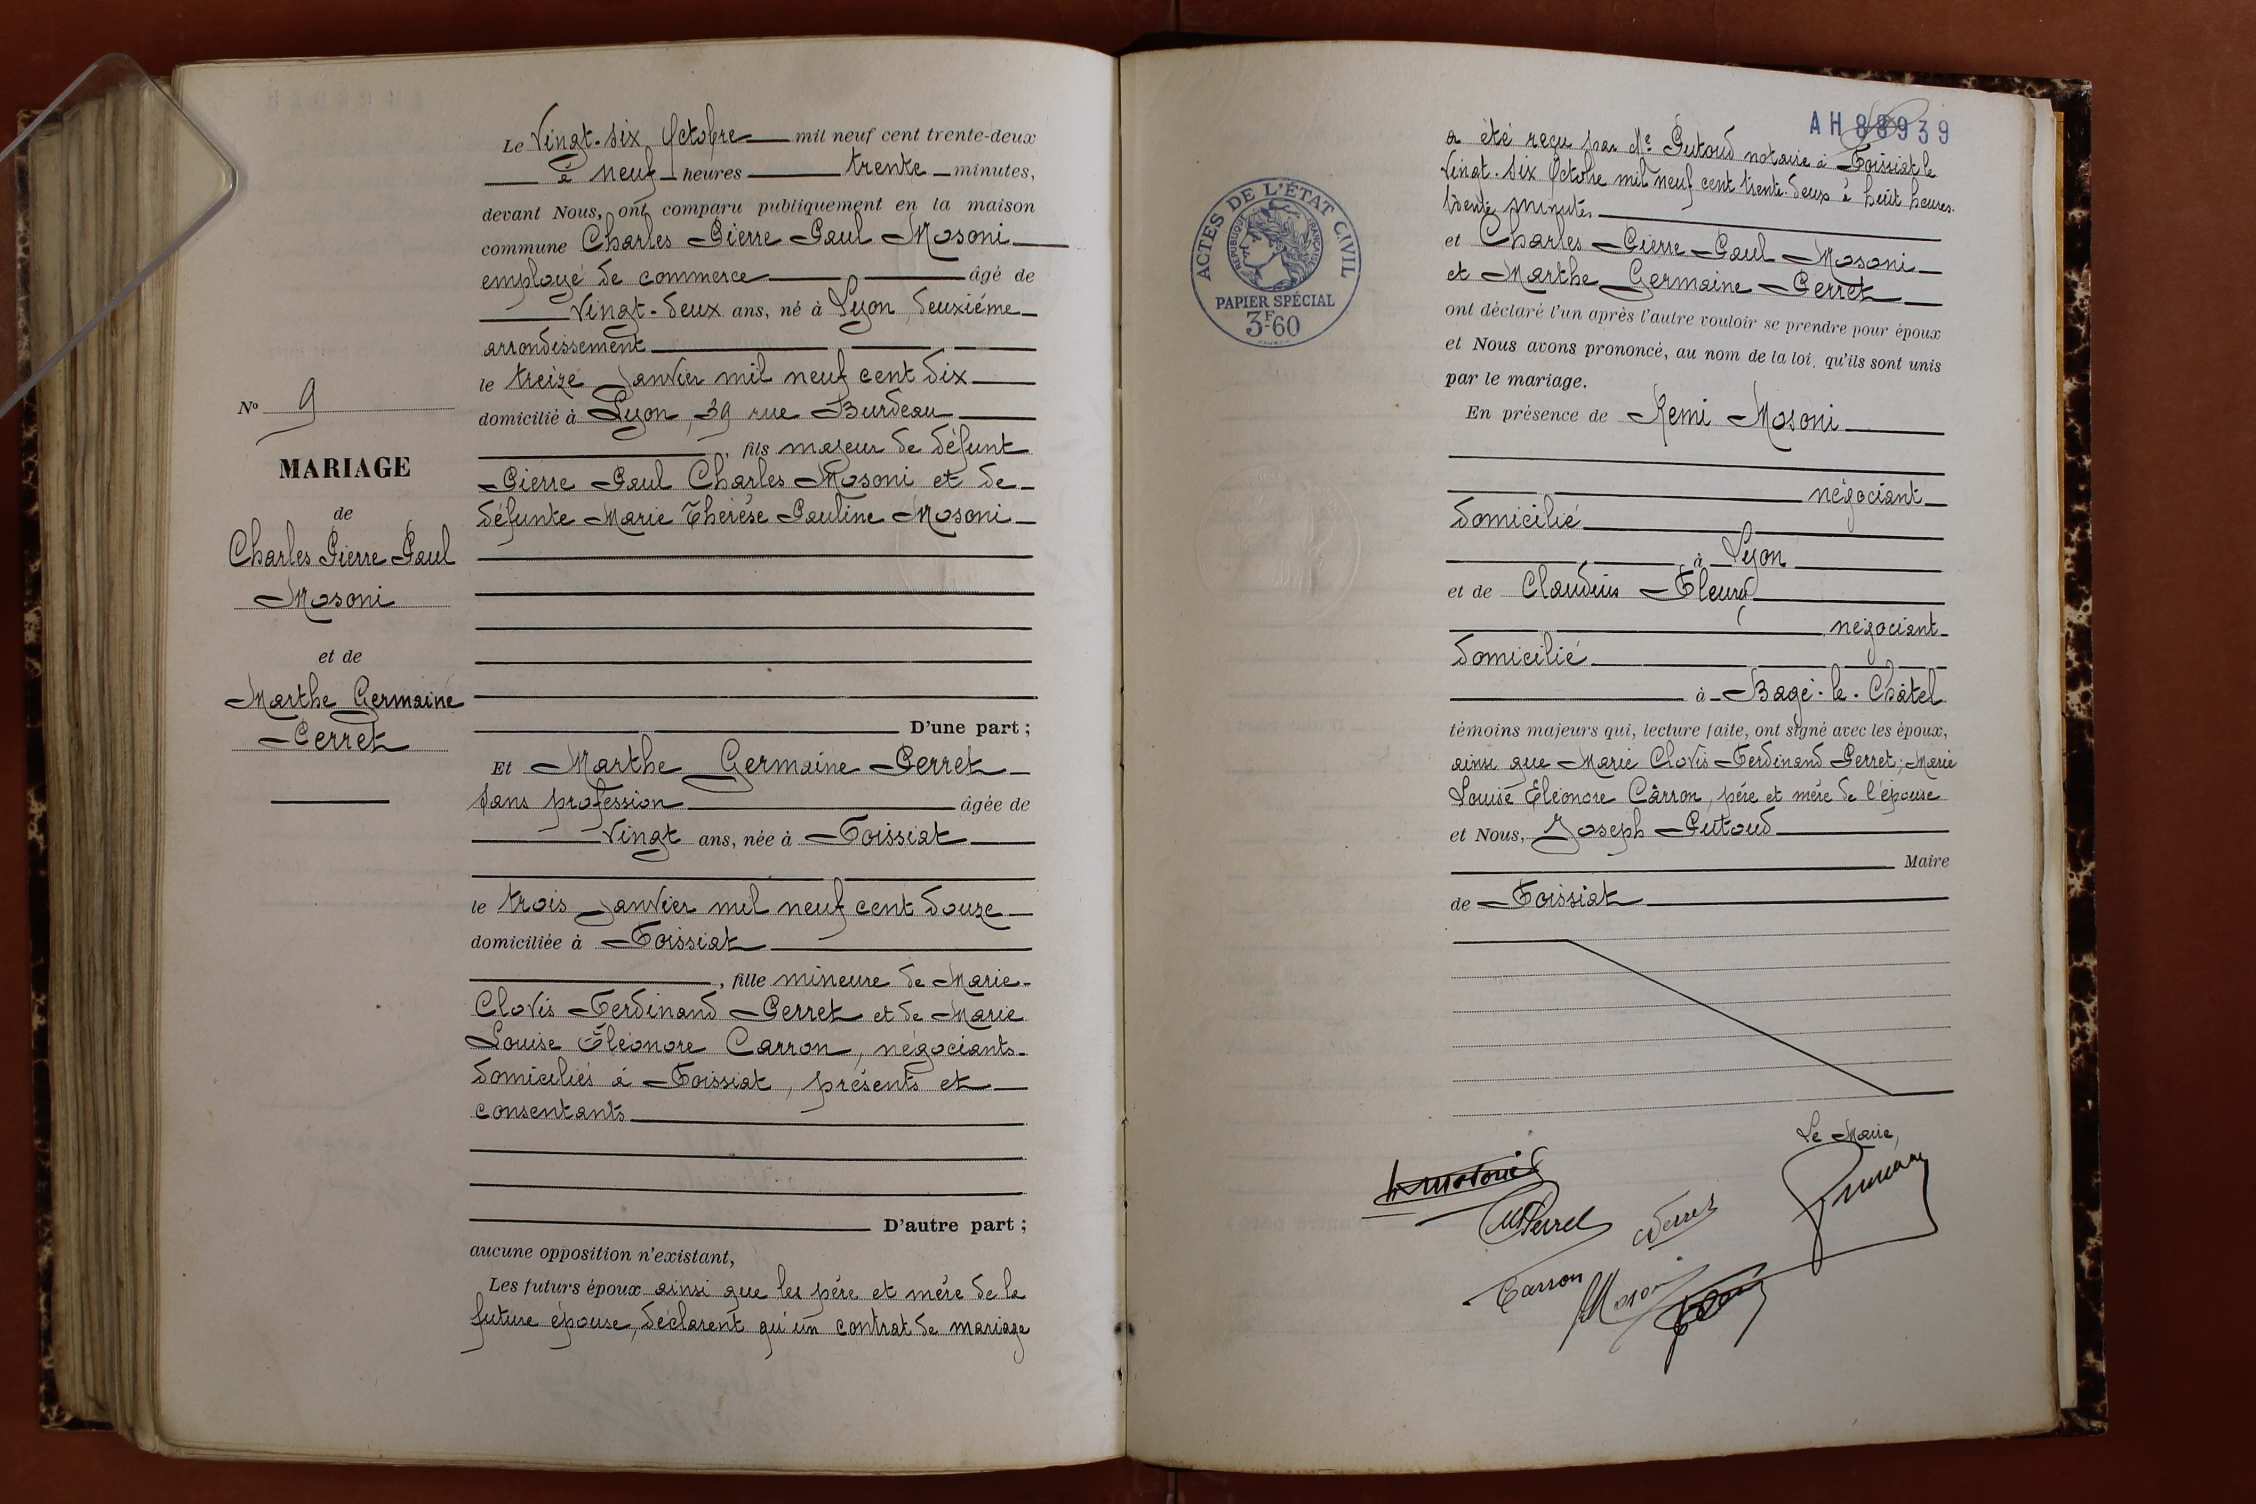 Le Vingt-six Octobre mil neuf cent trente-deux
à neuf heures trente minutes,
devant Nous, ont comparu publiquement en la maison
commune Charles Pierre Paul Mosoni
employé de commerce âgé de
Vingt-deux ans, né à Lyon, deuxième
arrondissement
le treize Janvier mil neuf cent dix
domicilié à Lyon, 39 rue Burdeau
, fils majeur de défunt
Pierre Paul Charles Mosoni et de
défunte Marie Thérèse Pauline Mosoni
D'une part ;
Et Marthe Germaine Perret
sans profession âgée de
Vingt ans, née à Foissiat
le trois Janvier mil neuf cent douze
domiciliée à Foissiat
, fille mineure de Marie
Clovis Ferdinand Perret et de Marie
Louise Éléonore Carron, négociants
domiciliés à Foissiat, présents et
consentants
D'autre part ;
aucune opposition n'existant,
Les futurs époux ainsi que les père et mère de la
future épouse, déclarent qu'un contrat de mariage
No 9
MARIAGE
de
Charles Pierre Paul
Mosoni
et de
Marthe Germaine
Perret
AH 88939
a été reçu par Me Putoud notaire à Foissiat le
Vingt-six Octobre mil neuf cent trente-deux à huit heures
trente minutes
et Charles Pierre Paul Mosoni
et Marthe Germaine Perret
ont déclaré l'un après l'autre vouloir se prendre pour époux
et Nous avons prononcé, au nom de la loi, qu'ils sont unis
par le mariage.
En présence de Remi Mosoni
négociant
domicilié
à Lyon
et de Claudius Fleury
négociant
domicilié
à Bagé-le-Châtel
témoins majeurs qui, lecture faite, ont signé avec les époux,
ainsi que Marie Clovis Ferdinand Perret; Marie
Louise Éléonore Carron, père et mère de l'épouse
et Nous, Joseph Putoud
Maire
de Foissiat
ACTES DE L'ÉTAT CIVIL
RÉPUBLIQUE FRANÇAISE
PAPIER SPÉCIAL
3F60
Le Maire,
Mosoni
Perret
Perret
Carron
Mosoni